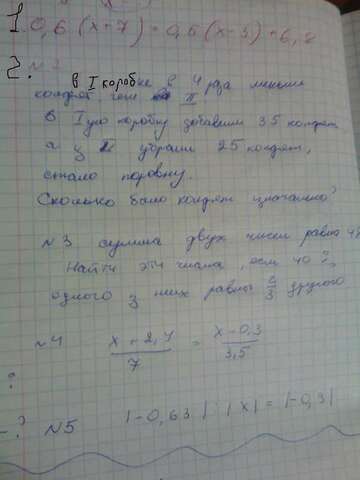 1. 0,6 (x+7) = 0,5 (x-3) + 6,2
2.
в I коробке в 4 раза меньше
конфет, чем II
В Iую коробку добавили 35 конфет
а из II убрали 25 конфет,
стало поровну.
Сколько было конфет изначально?
№3 сумма двух чисел равна 48
Найти эти числа, если 40%
одного из них равны 2/3 другого
№4 (x+2,4)/7 = (x-0,3)/3,5
№5 |-0,63| : |x| = |-0,9|